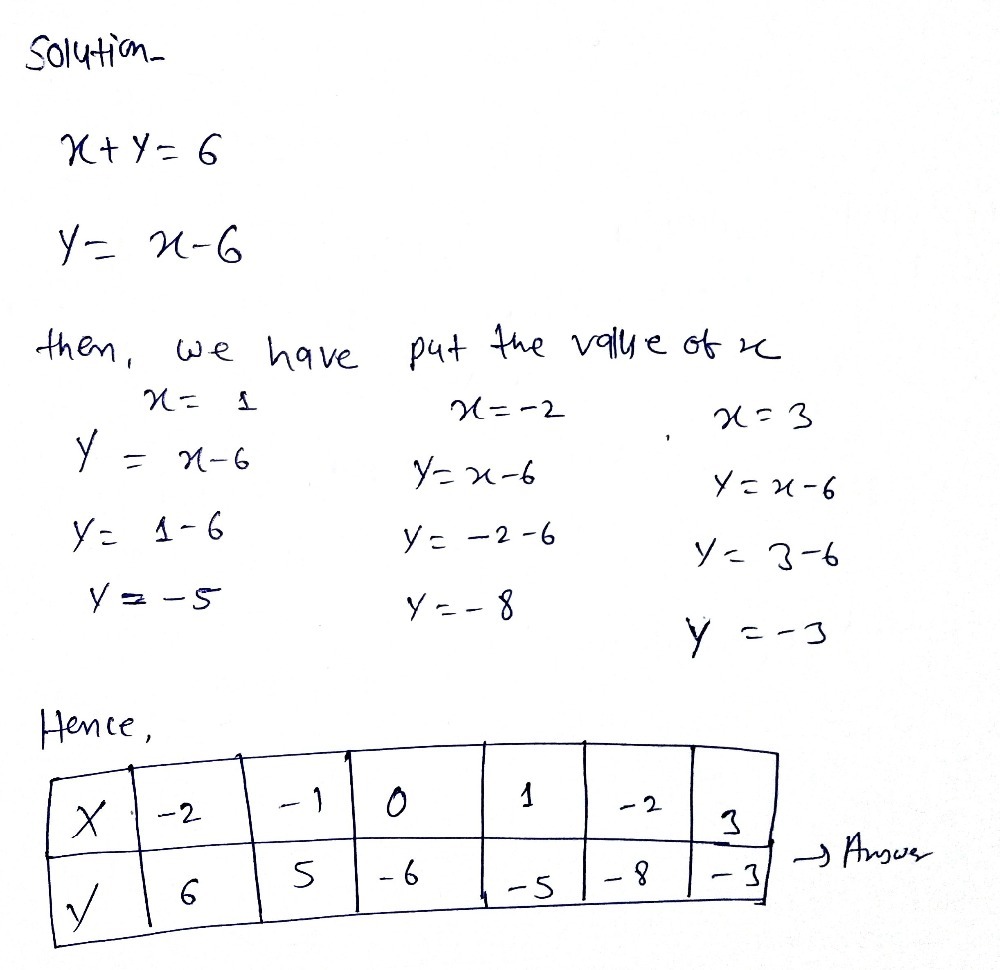 Solution-
x + y = 6
y = x-6
then, we have put the value of x
x = 1 x = -2 x = 3
y = x-6 y = x-6 y = x-6
y = 1-6 y = -2-6 y = 3-6
y = -5 y = -8 y = -3
Hence,
X -2 -1 0 1 -2 3
Y 6 5 -6 -5 -8 -3 → Answer